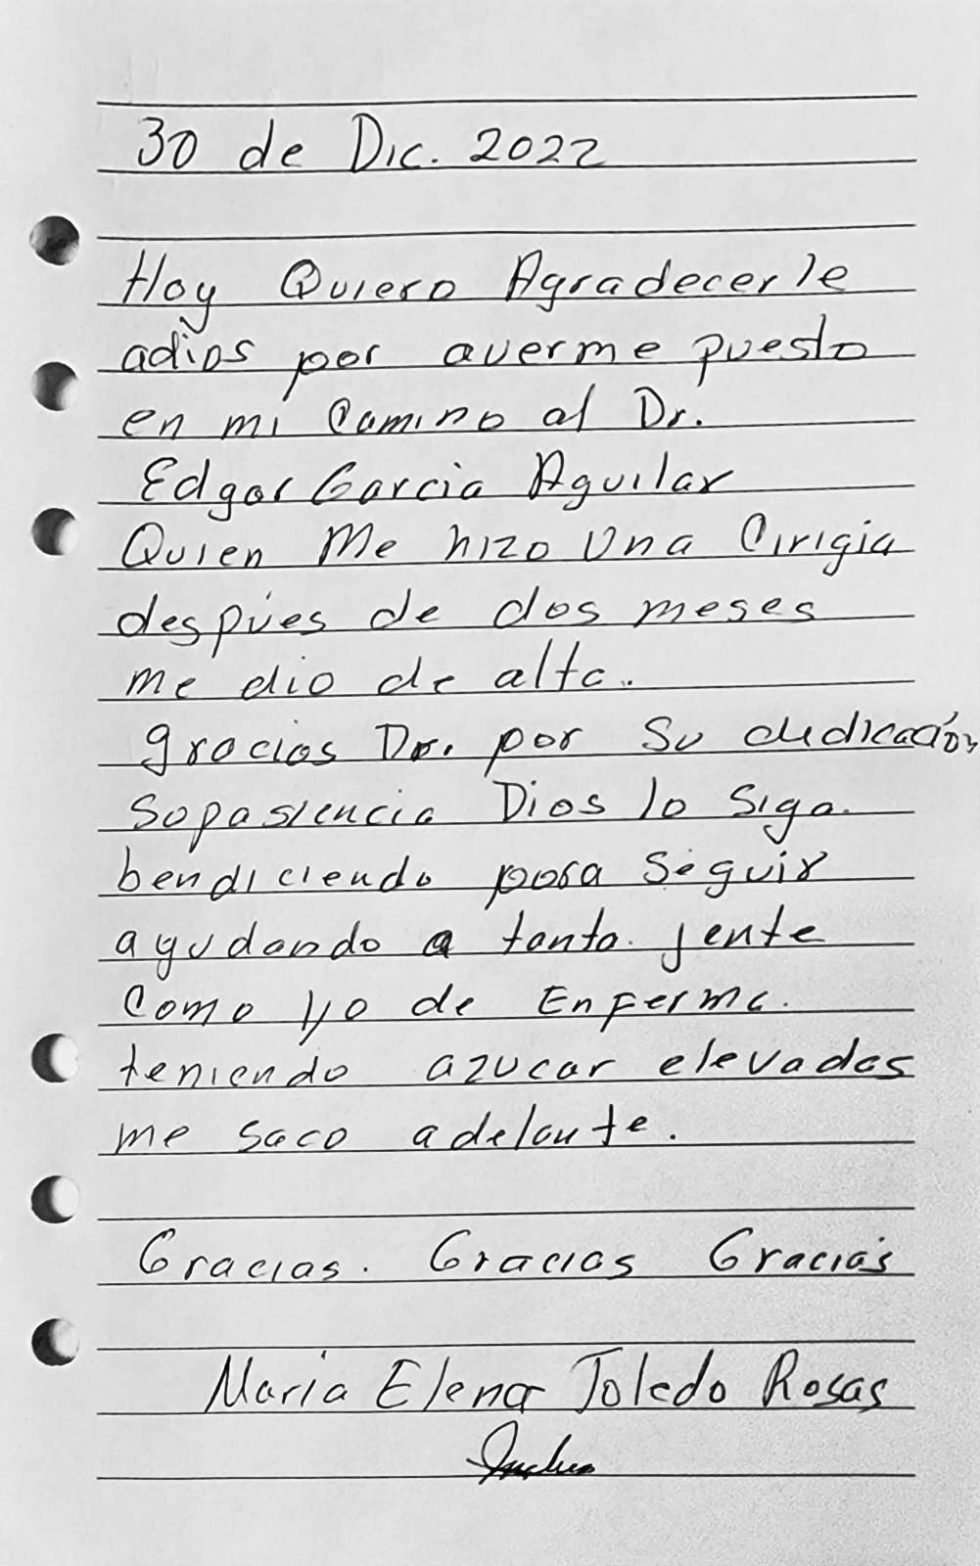 30 de Dic. 2022
Hoy Quiero Agradecerle
adios por averme puesto
en mi Camino al Dr.
Edgar Garcia Aguilar
Quien Me hizo Una Cirigia
despúes de dos meses
me dio de alta.
gracias Dr. por Su dedicación
Sopasiencia Dios lo Siga.
bendiciendo para Seguir
ayudando a tanta jente
Como yo de Enferma.
teniendo azucar elevadas
me saco adelante.
Gracias. Gracias Gracias
Maria Elena Toledo Rosas